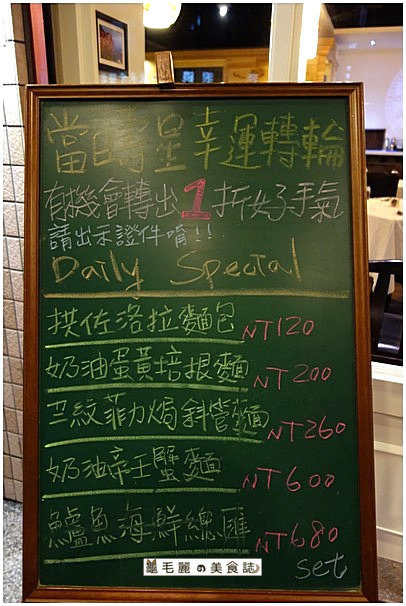 當晴星幸運轉輪
有機會轉出1折好手氣
請出示證件唷!!
Daily Special
拱佐洛拉麵包 NT120
奶油蛋黃培根麵 NT200
三紋菲力焗斜管麵 NT260
奶油帝王蟹麵 NT600
鱸魚海鮮總匯 NT680
set
毛麗の美食誌